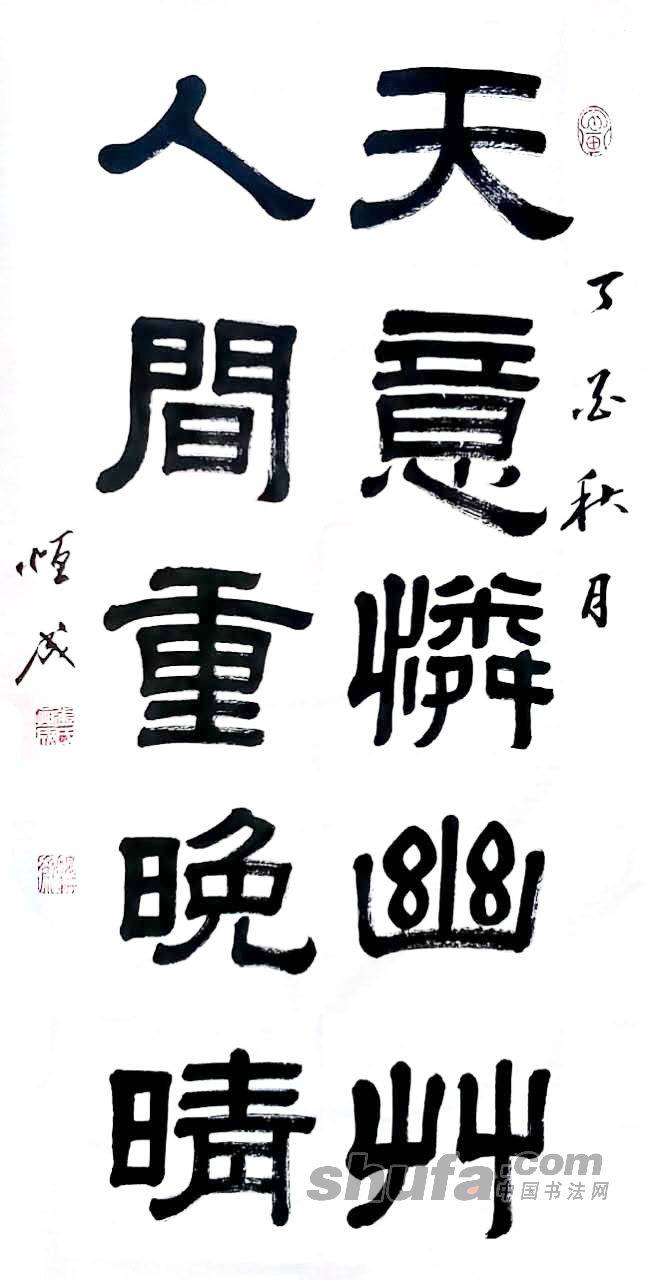 丁酉秋月
天意憐幽艸
人間重晚晴
恒成
shufa.com
中国书法网